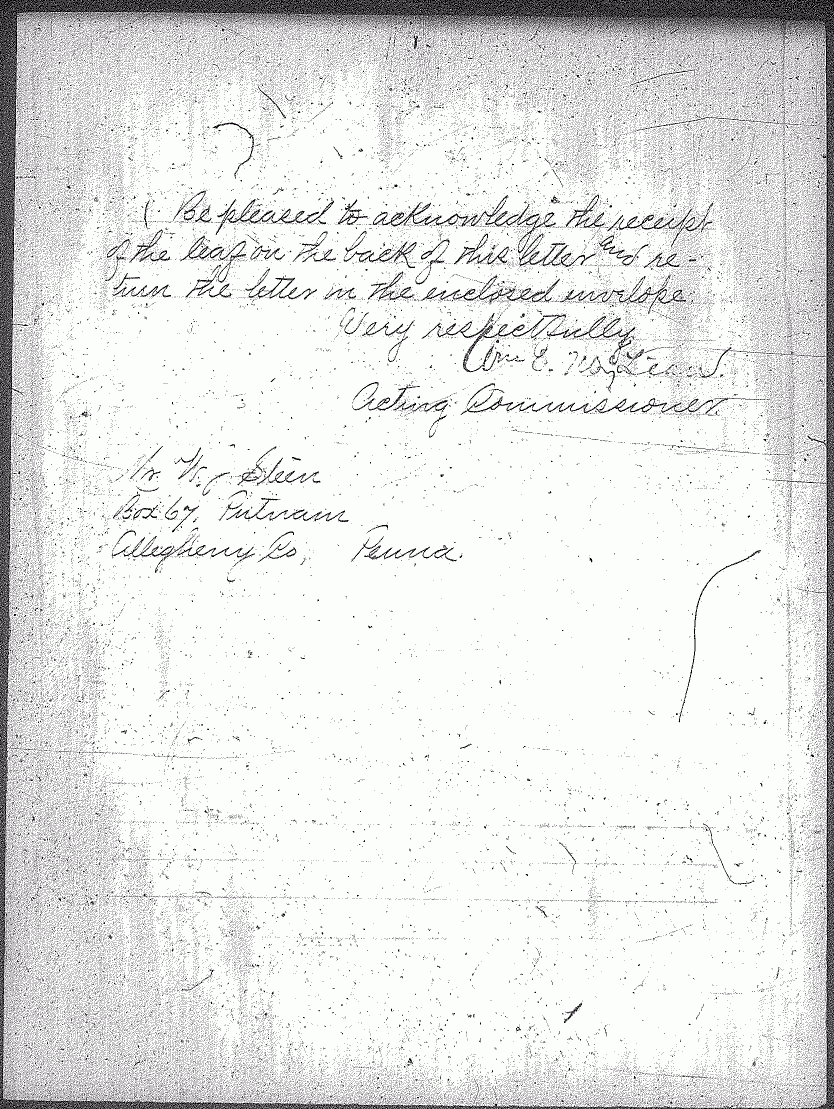 Be pleased to acknowledge the receipt
of the leaf on the back of this letter and re-
turn the letter in the enclosed envelope.
Very respectfully,
Wm E. McLean.
Acting Commissioner.
Mr. W. Stein
Box 67, Putnam
Allegheny Co, Penna.